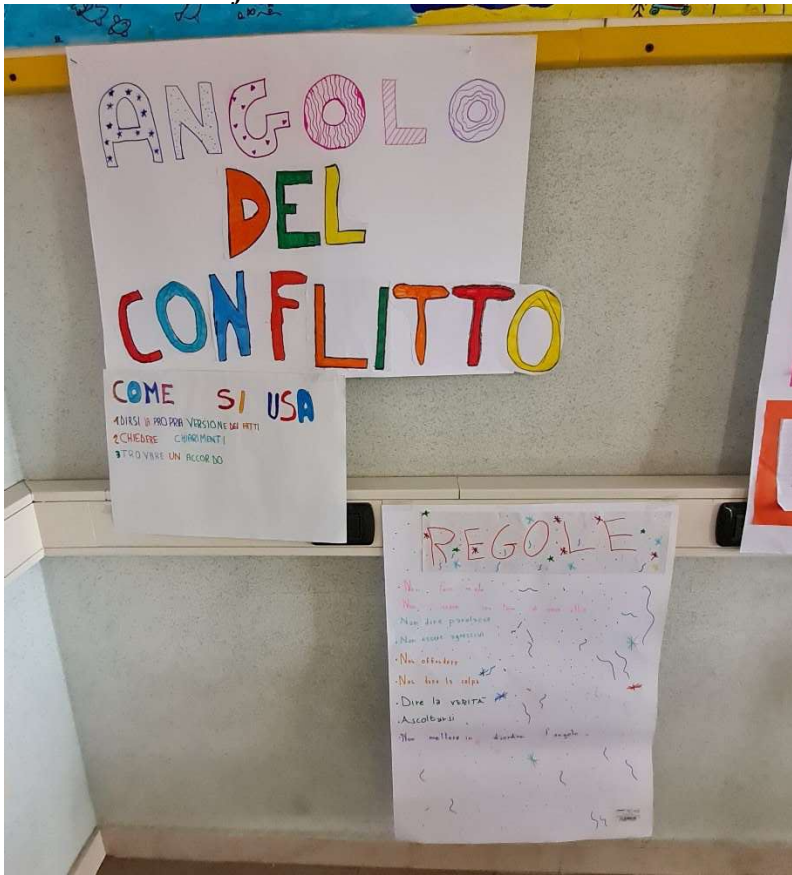 ANGOLO
DEL
CONFLITTO
COME SI USA
1 DIRSI LA PROPRIA VERSIONE DEI FATTI
2 CHIEDERE CHIARIMENTI
3 TROVARE UN ACCORDO
REGOLE
• Non fare male
Non tono
• Non dire parolacce
• Non essere agressivi
• Non offendere
• Non dare la colpa
• Dire la VERITÀ
• Ascoltarsi
• Non mettere in disordine l'angolo.